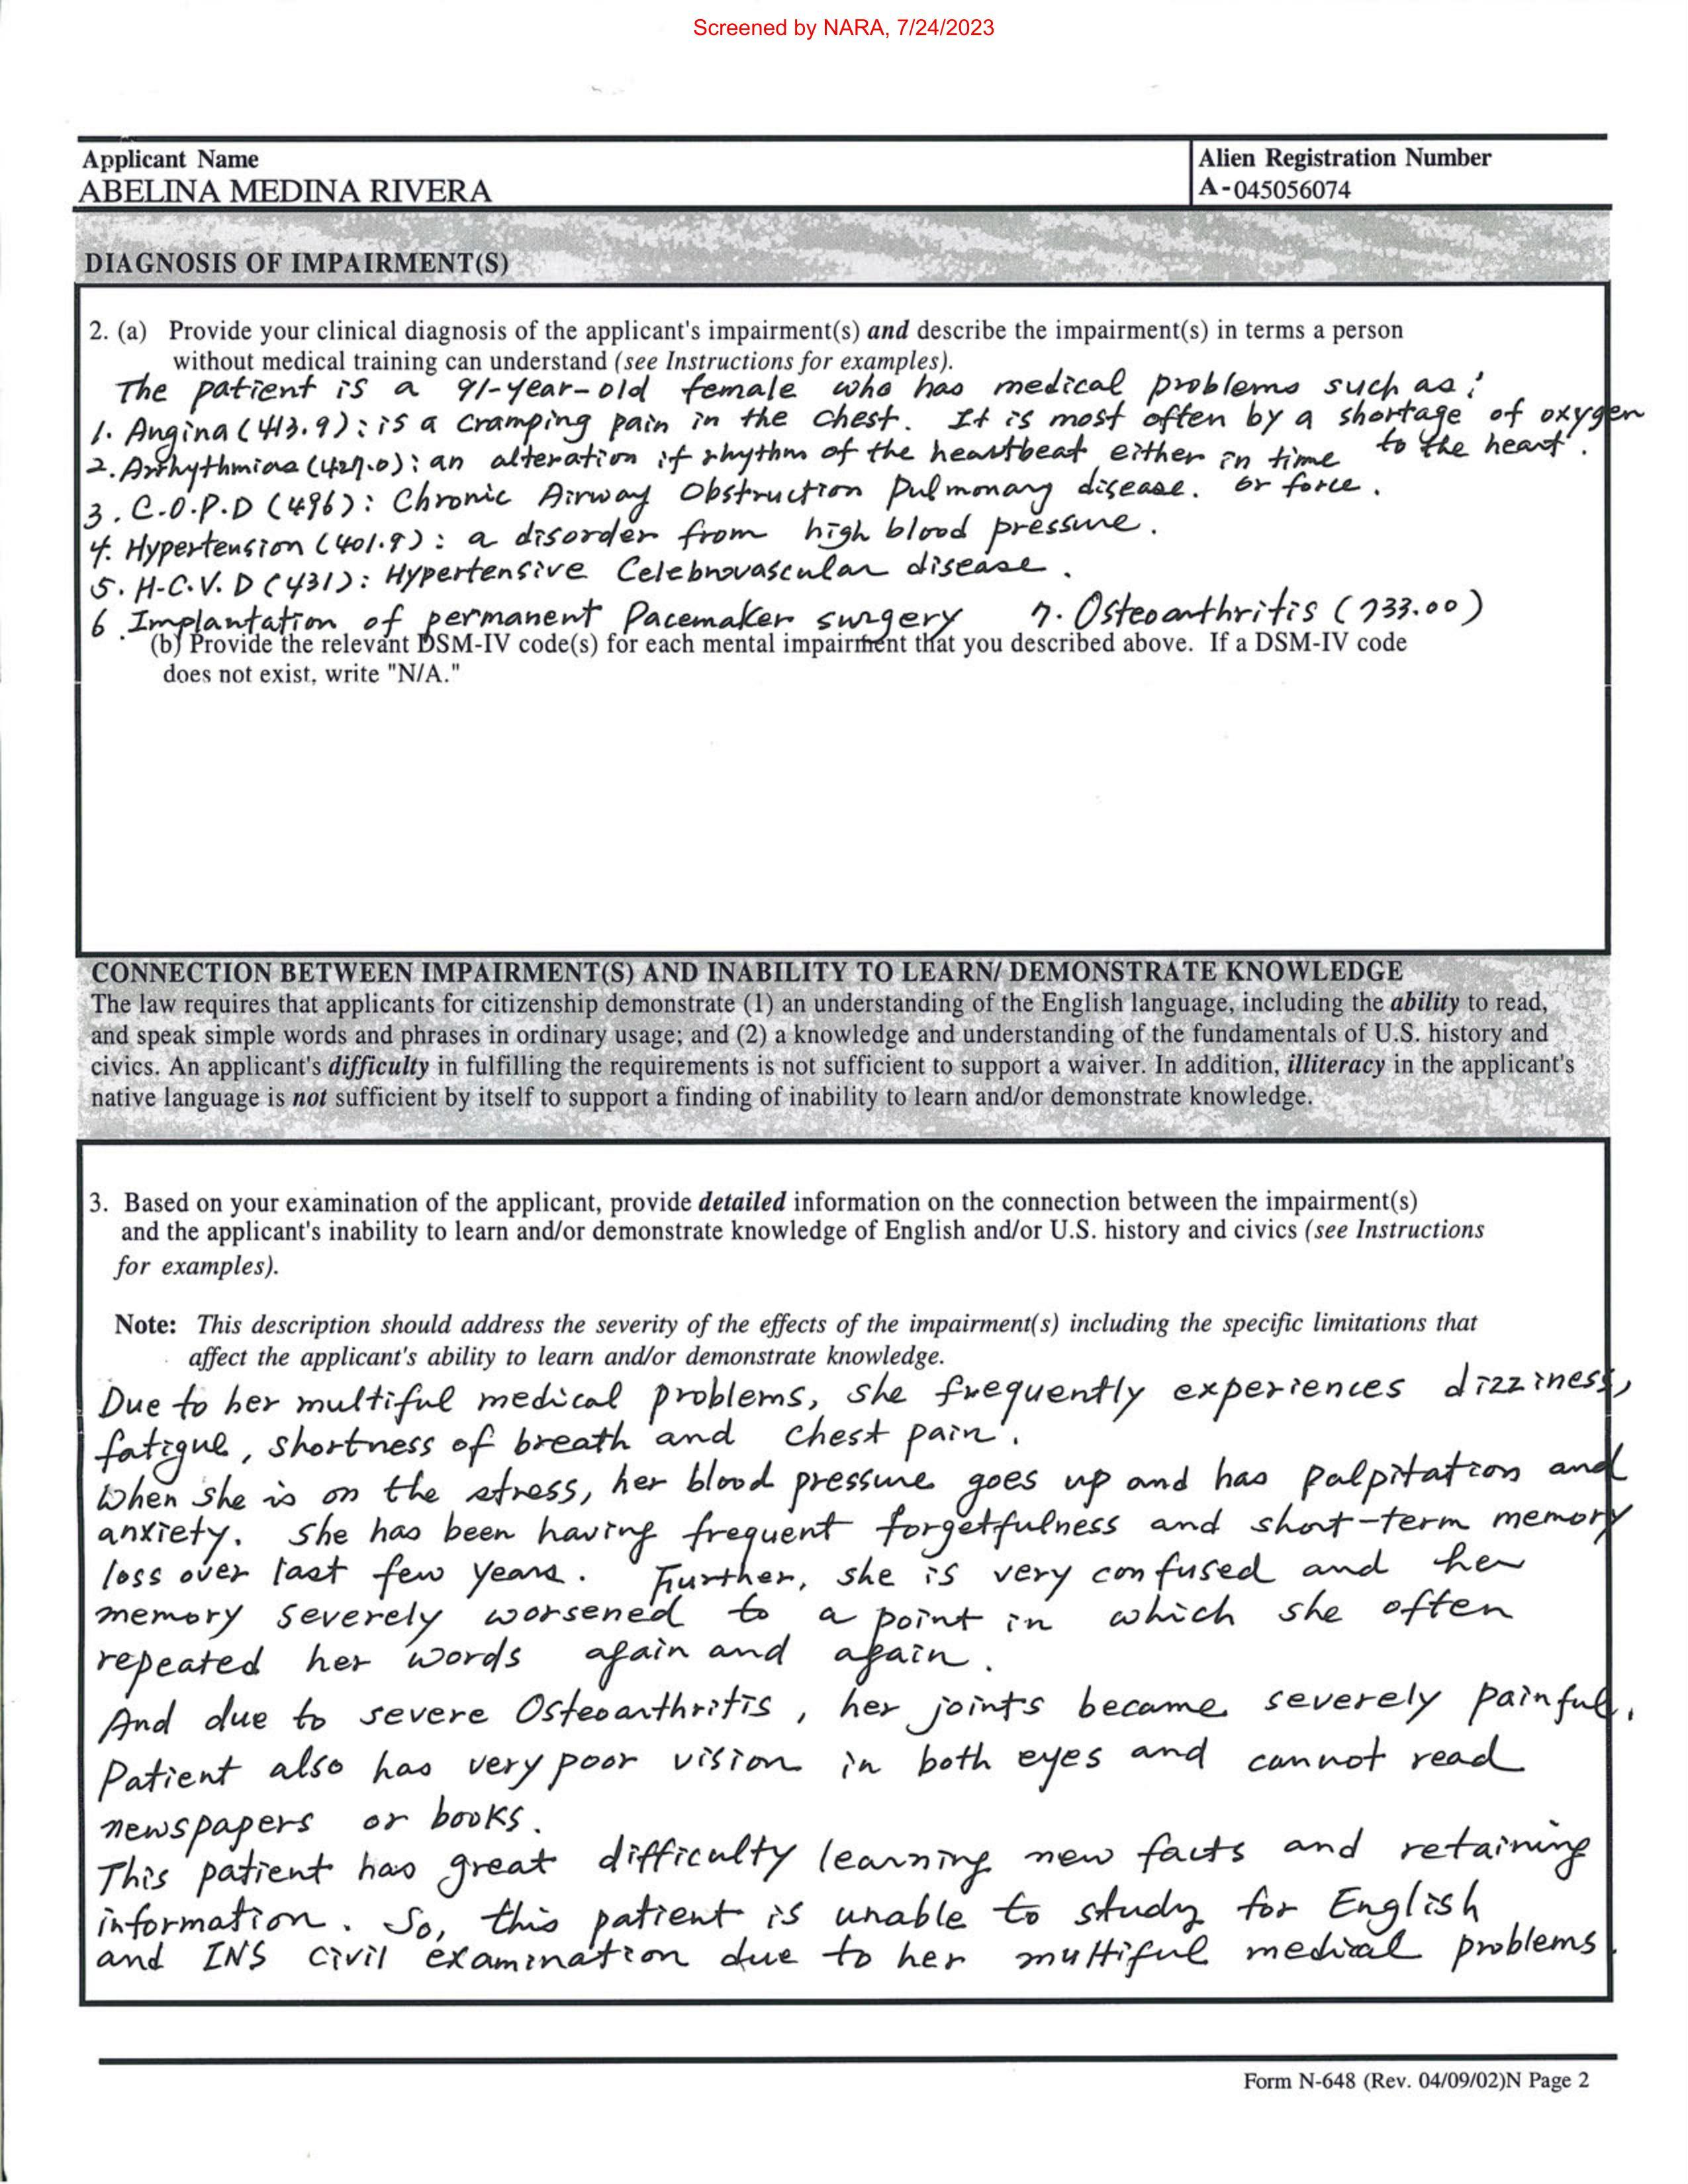 Screened by NARA, 7/24/2023
Applicant Name
ABELINA MEDINA RIVERA
Alien Registration Number
A-045056074
DIAGNOSIS OF IMPAIRMENT(S)
2. (a) Provide your clinical diagnosis of the applicant's impairment(s) and describe the impairment(s) in terms a person
without medical training can understand (see Instructions for examples).
The patient is a 91-year-old female who has medical problems such as:
1. Angina (413.9): is a cramping pain in the chest. It is most often by a shortage of oxygen
to the heart.
2. Arrhythmias (427.0): an alteration if rhythm of the heartbeat either in time
or force.
3. C.O.P.D (496): Chronic Airway Obstruction Pulmonary disease.
4. Hypertension (401.9): a disorder from high blood pressure.
5. H-C.V.D (431): Hypertensive Celebrovascular disease.
6. Implantation of permanent Pacemaker surgery 7. Osteoarthritis (733.00)
(b) Provide the relevant DSM-IV code(s) for each mental impairment that you described above. If a DSM-IV code
does not exist, write "N/A."
CONNECTION BETWEEN IMPAIRMENT(S) AND INABILITY TO LEARN/ DEMONSTRATE KNOWLEDGE
The law requires that applicants for citizenship demonstrate (1) an understanding of the English language, including the ability to read,
and speak simple words and phrases in ordinary usage; and (2) a knowledge and understanding of the fundamentals of U.S. history and
civics. An applicant's difficulty in fulfilling the requirements is not sufficient to support a waiver. In addition, illiteracy in the applicant's
native language is not sufficient by itself to support a finding of inability to learn and/or demonstrate knowledge.
3. Based on your examination of the applicant, provide detailed information on the connection between the impairment(s)
and the applicant's inability to learn and/or demonstrate knowledge of English and/or U.S. history and civics (see Instructions
for examples).
Note: This description should address the severity of the effects of the impairment(s) including the specific limitations that
affect the applicant's ability to learn and/or demonstrate knowledge.
Due to her multiful medical problems, she frequently experiences dizziness,
fatigue, shortness of breath and chest pain.
When she is on the stress, her blood pressure goes up and has palpitation and
anxiety. She has been having frequent forgetfulness and short-term memory
loss over last few years. Further, she is very confused and her
memory severely worsened to a point in which she often
repeated her words again and again.
And due to severe Osteoarthritis, her joints became severely painful.
Patient also has very poor vision in both eyes and cannot read
newspapers or books.
This patient has great difficulty learning new facts and retaining
information. So, this patient is unable to study for English
and INS civil examination due to her multiful medical problems.
Form N-648 (Rev. 04/09/02)N Page 2